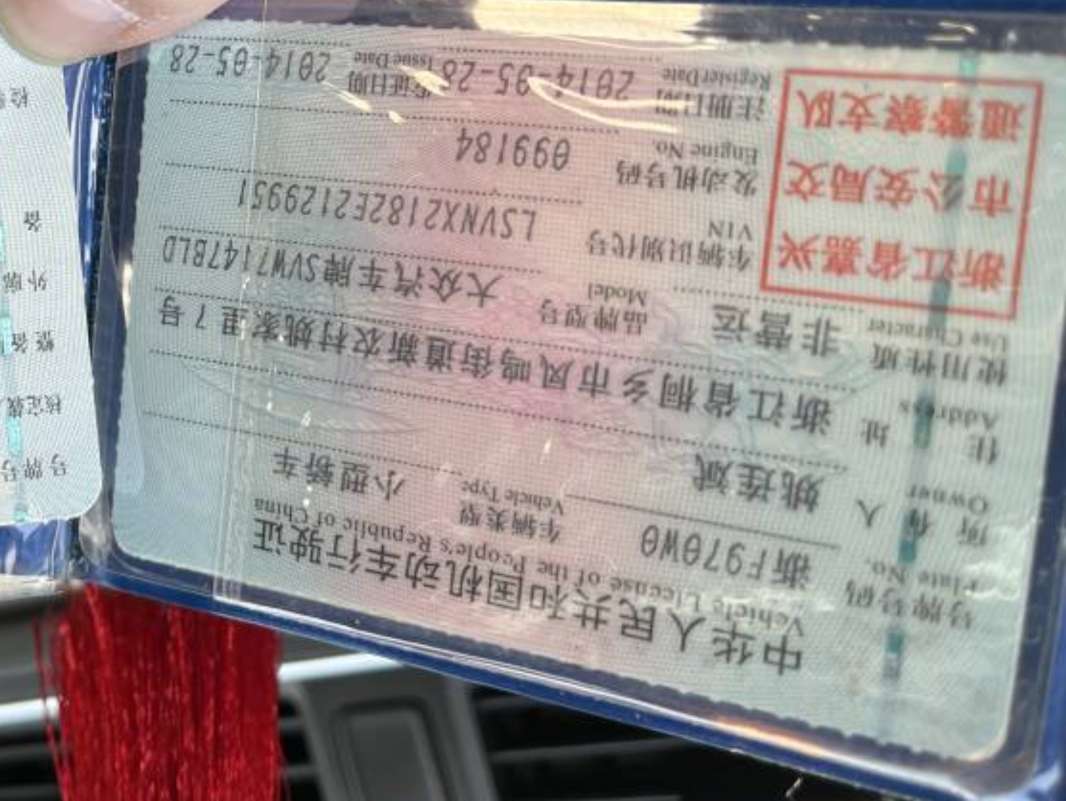 中华人民共和国机动车行驶证
Vehicle License of the People's Republic of China
号牌号码 浙F970W0 车辆类型 小型轿车
Plate No. Vehicle Type
所有人 姚连斌
Owner
住址 浙江省桐乡市凤鸣街道新农村姚家里7号
Address
使用性质 非营运 品牌型号 大众汽车牌SVW7147BLD
Use Character Model
浙江省嘉兴
市公安局交
通警察支队
车辆识别代号 LSVNX2182E2129951
VIN
发动机号码 099184
Engine No.
注册日期 2014-05-28 发证日期 2014-05-28
Register Date Issue Date
号牌号
核定载
整备
外廓
备
检